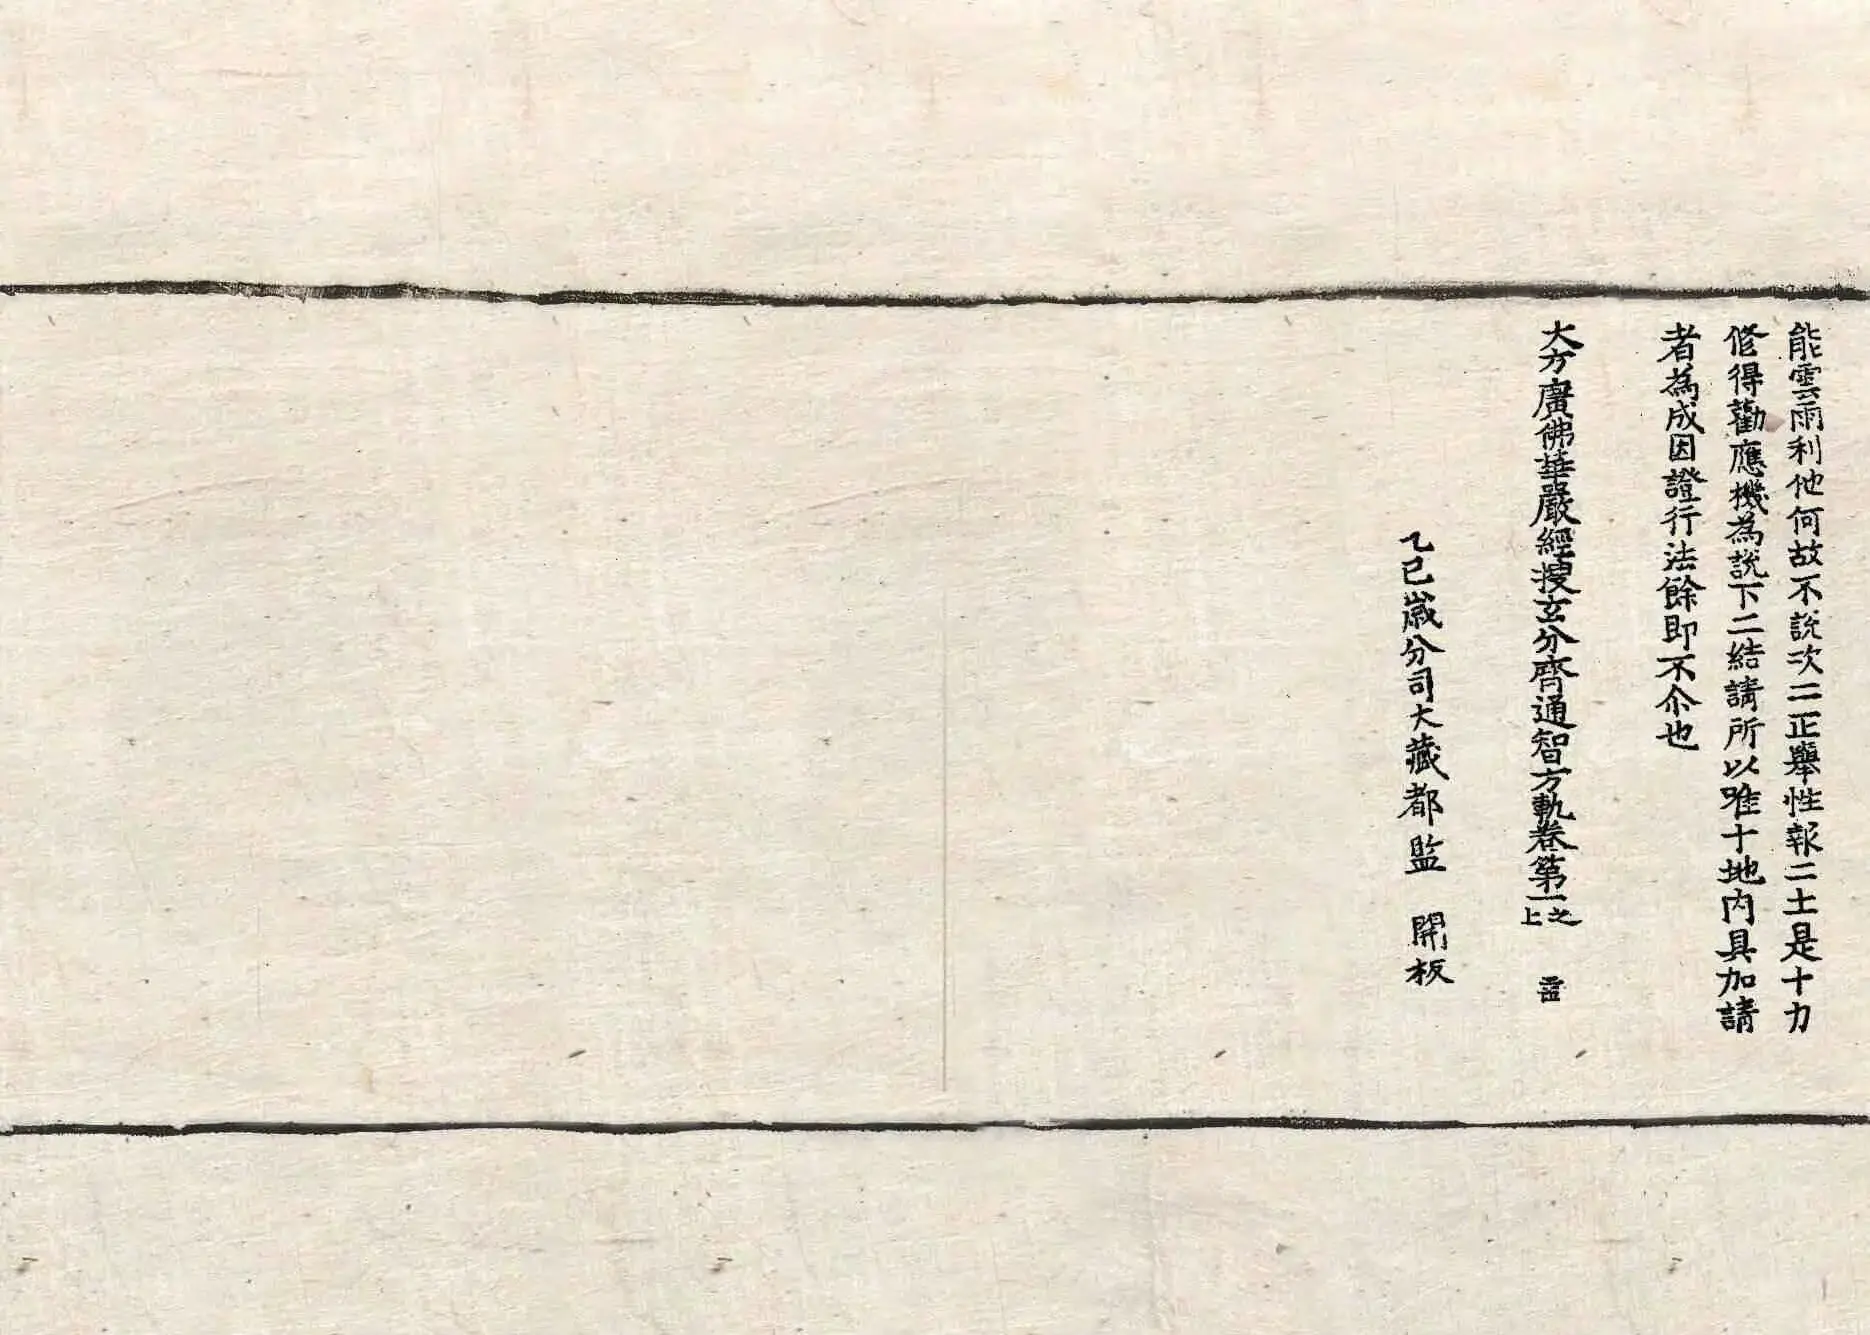 能雲雨利他何故不說次二正舉性報二土是十力
修得勸應機為說下二結請所以唯十地內具加請
者為成因證行法餘即不尒也
大方廣佛華嚴經搜玄分齊通智方軌卷第一之上
乙巳歲分司大藏都監 開板